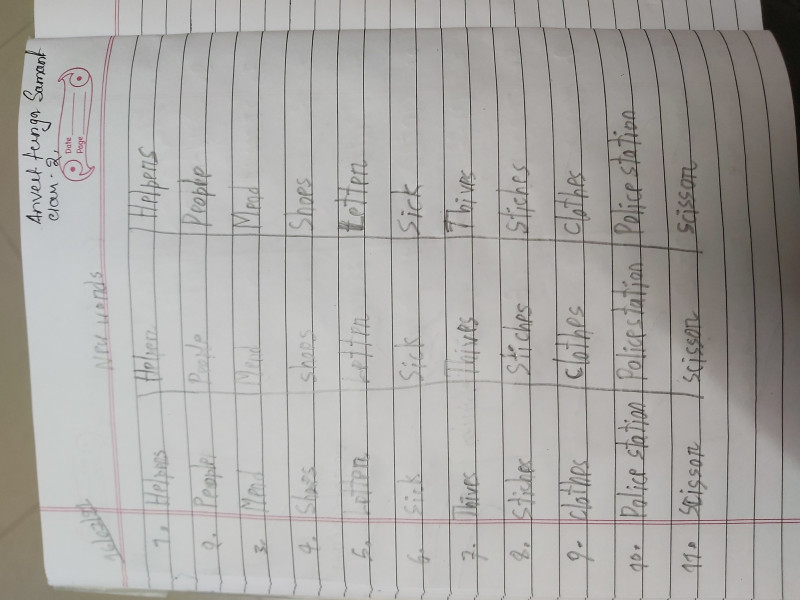 Anveet tunga Samant
Class - 2
Date
Page
New words
1. Helpers Helpen Helpers
2. People People People
3. Mend Mend Mend
4. Shoes Shoes Shoes
5. Letten Letten Letten
6. Sick Sick Sick
7. Thives Thives Thives
8. Stiches Stiches Stiches
9. Clothes Clothes Clothes
10. Police station Police station Police station
11. Scisson Scisson Scisson